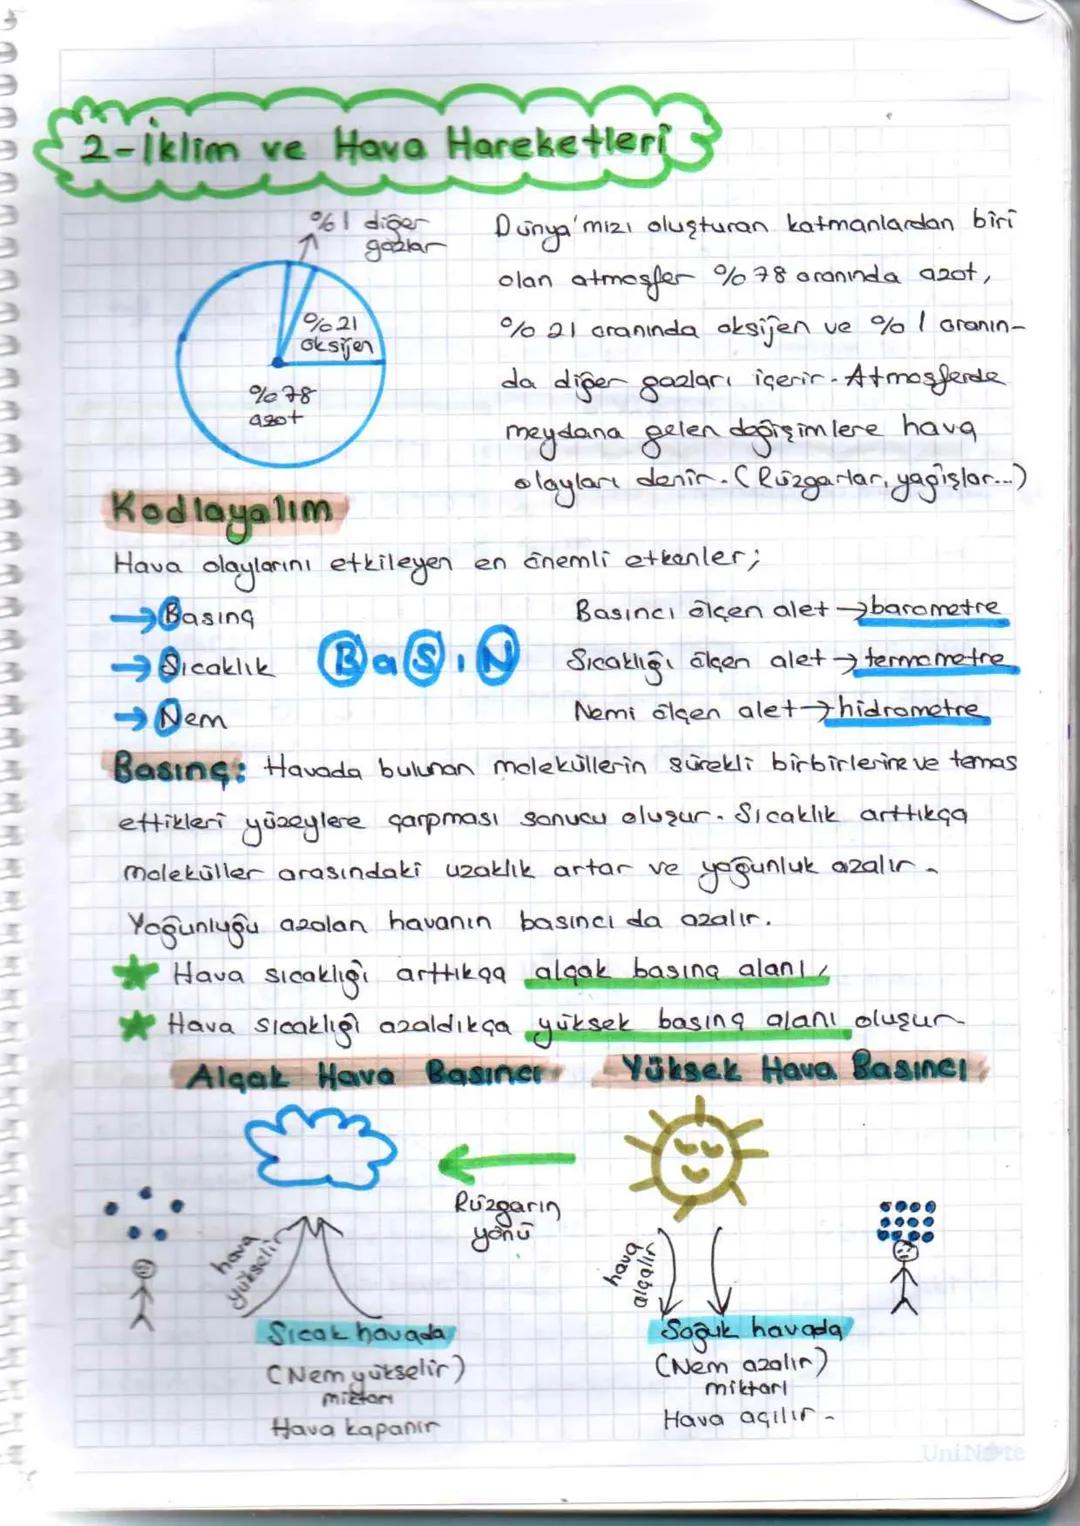 2-İklim ve Hava Hareketleri
%1 diğer
gazlar
%21
oksijen
%78
azot
Dünya'mızı oluşturan katmanlardan biri
olan atmosfer %78 oranında azot,
%21 oranında oksijen ve %1 oranın-
da diğer gazları içerir. Atmosferde
meydana gelen değişimlere hava
olayları denir. (Rüzgarlar, yağışlar...)
Kodlayalım
Hava olaylarını etkileyen en önemli etkenler;
→ Basınç
→ Sıcaklık
→ Nem
BaSıN
Basıncı ölçen alet → barometre
Sıcaklığı ölçen alet → termometre
Nemi ölçen alet → hidrometre
Basınç: Havada bulunan moleküllerin sürekli birbirlerine ve temas
ettikleri yüzeylere çarpması sonucu oluşur. Sıcaklık arttıkça
moleküller arasındaki uzaklık artar ve yoğunluk azalır.
Yoğunluğu azalan havanın basıncı da azalır.
★ Hava sıcaklığı arttıkça alçak basınç alanı,
★ Hava sıcaklığı azaldıkça yüksek basınç alanı oluşur.
Alçak Hava Basıncı
Yüksek Hava Basıncı
Rüzgarın
yönü
hava
yükselir
hava
alçalır
Sıcak havada
(Nem yükselir)
miktarı
Hava kapanır
Soğuk havada
(Nem azalır)
miktarı
Hava açılır.
UniNote